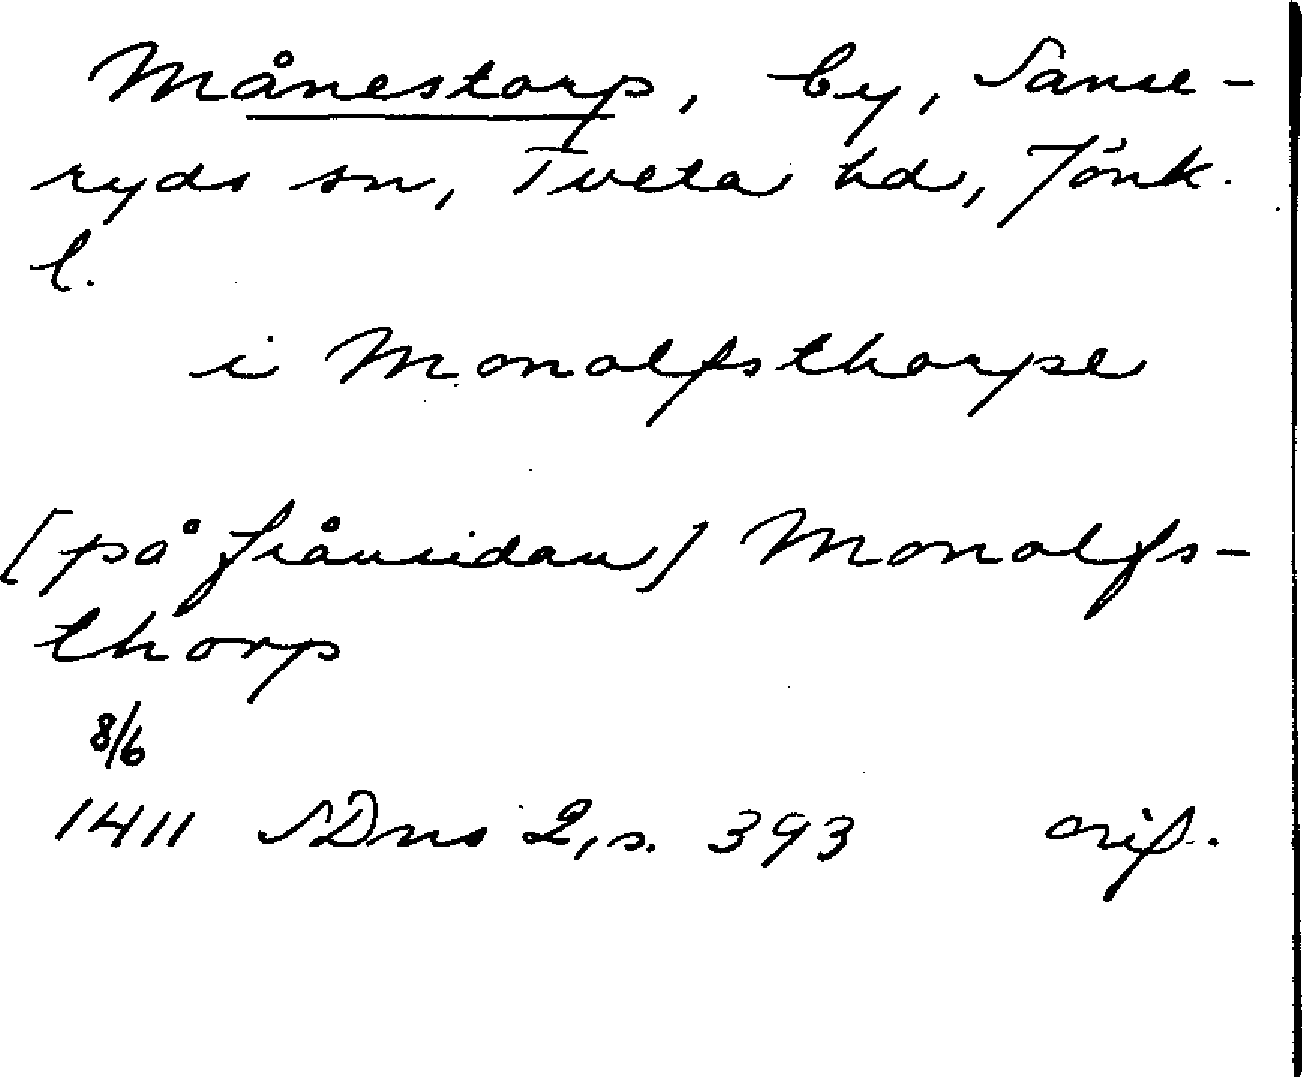 Månestorp, by, Sanse-
ryds sn, Tveta hd, Jönk.
l.
i Monolfsthorpe
[på frånsidan] Monolfs-
thorp
8/6
1411 SDns 2, s. 393 orig.